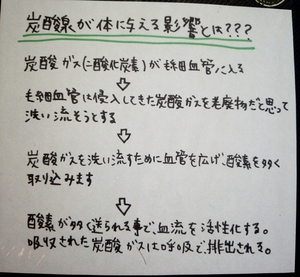 炭酸泉が体に与える影響とは???
炭酸ガス(二酸化炭素)が毛細血管に入る
毛細血管は侵入してきた炭酸ガスを老廃物だと思って
洗い流そうとする
炭酸ガスを洗い流すために血管を広げ、酸素を多く
取り込みます
酸素が多く送られる事で血流を活性化する。
吸収された炭酸ガスは呼吸で排出される。